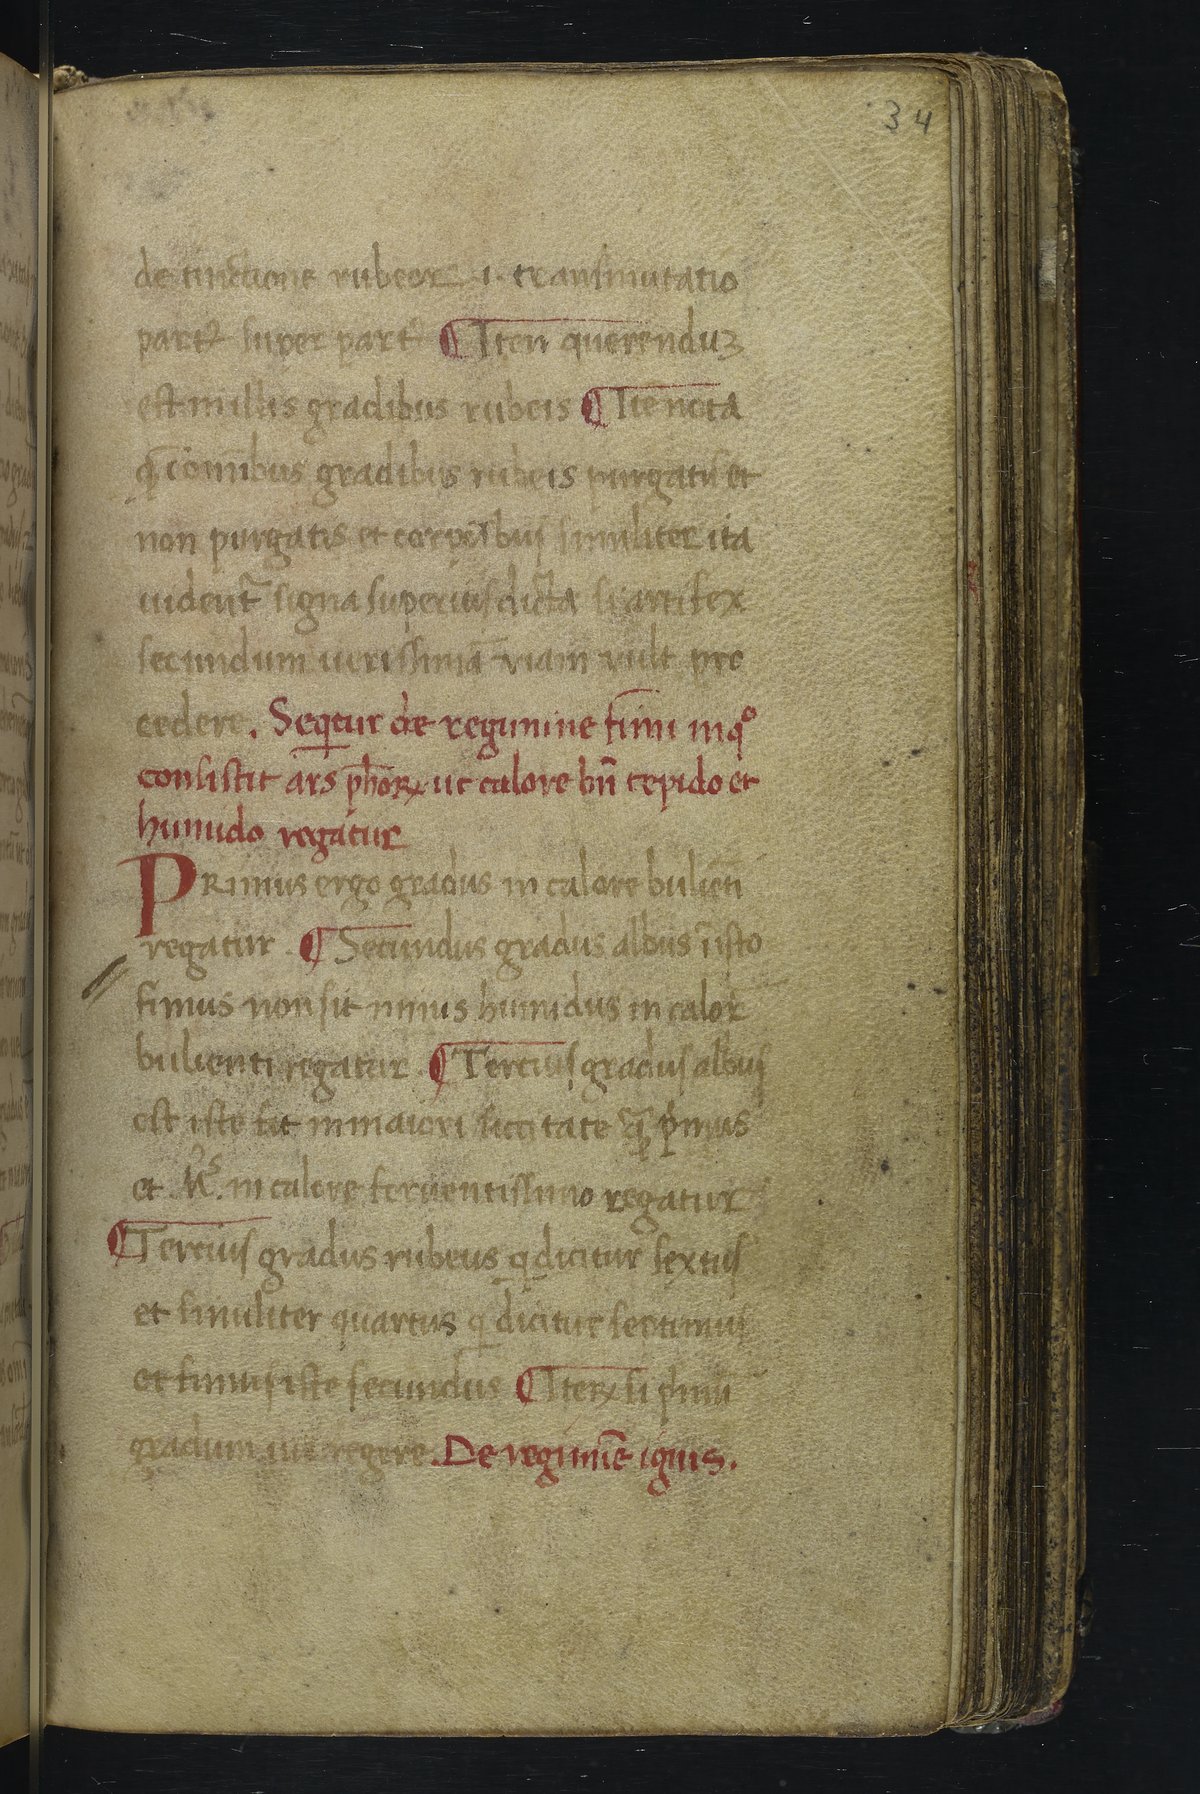 34
de tinctione rubeoꝝ .i. transmutatio
part super part ¶ Item querenduꝫ
est in illis gradibus rubeis ¶ Ité nota
ꝙ ī om̄ibus gradibus rubeis purgatis et
non purgatis et corporibus similiter ita
uident signa superius dicta si artifex
secundum uerissimā viam vult pro
cedere. Seqͥtur de regimine fimi in qͦ
consistit ars ph̄oꝝ ut calore bn̄ tepido et
humido regatur
Primus ergo gradus in calore bulienti
regatur . ¶ Secundus gradus albus ī isto
fimus non sit nimis humidus in calor
bulienti regatur . ¶ Tercius gradus albus
est iste fit in maiori siccitate qͣ pͥmus
et in calore feruentissimo regatur
¶ Tercius gradus rubeus q dicitur sextus
et similiter quartus q dicitur septimus
et fimus iste secundus ¶ Iteꝝ si pͥmū
gradum uis regere. De regimīe ignis.